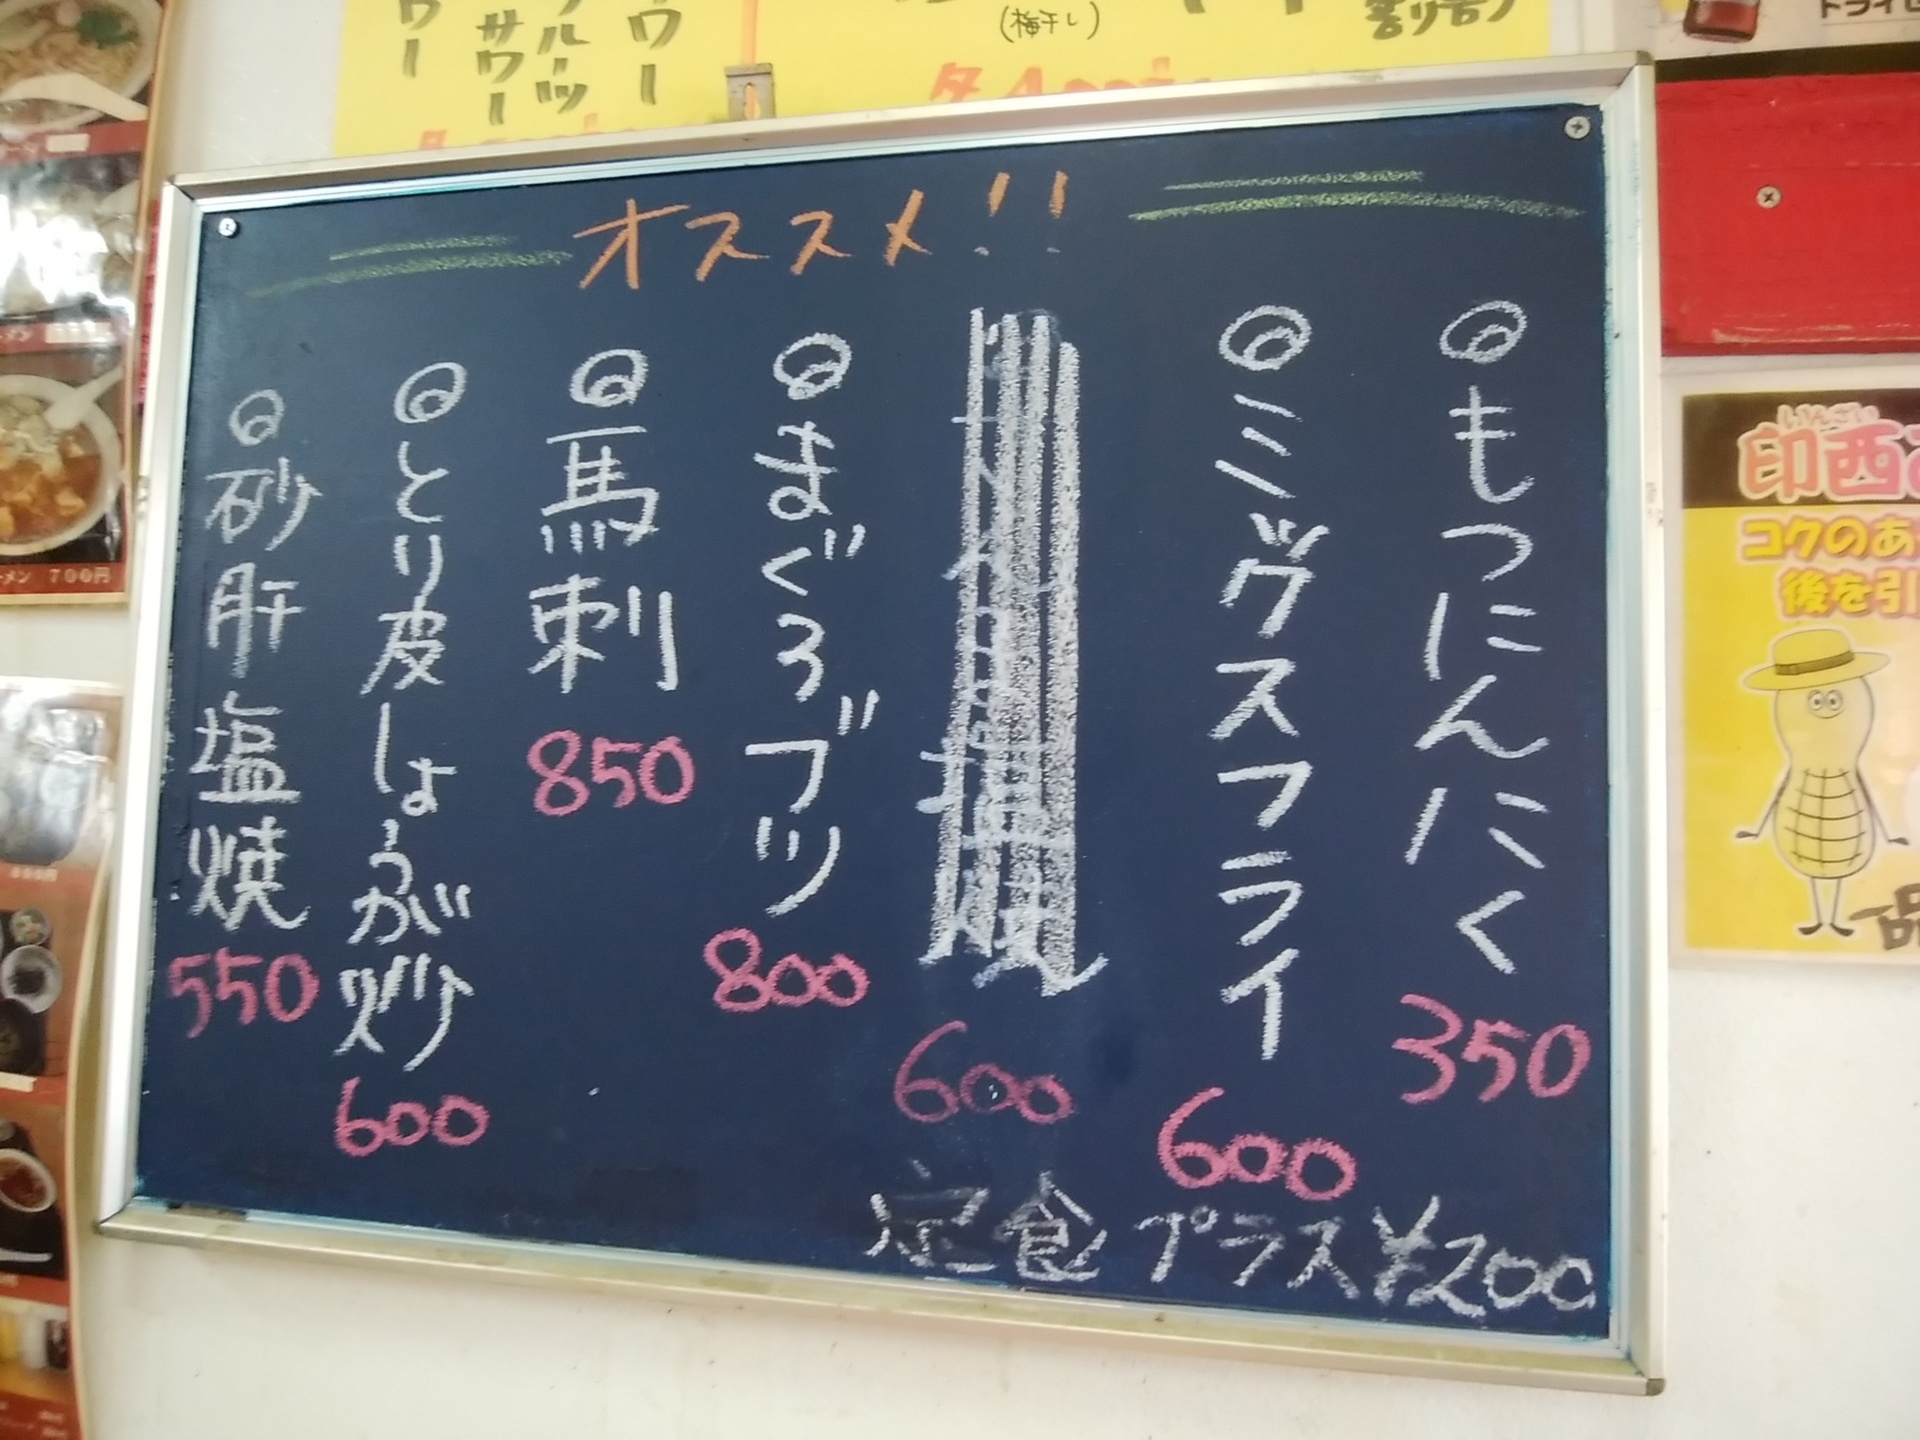 オススメ!!
もつにんにく
350
ミックスフライ
600
600
まぐろブツ
800
馬刺
850
とり皮しょうが炒
600
砂肝塩焼
550
定食 プラス ¥200
(梅干し)
サワー
いんざい
印西
コクのあ
後を引
700円